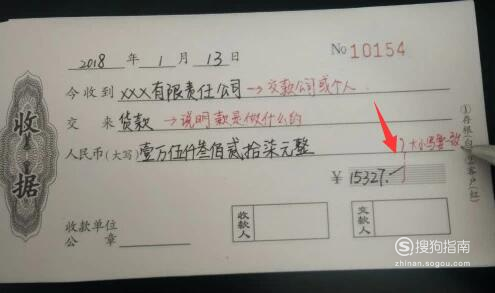 2018 年 1 月 13 日 No 10154
今收到 XXX有限责任公司 →交款公司或个人
交来 货款 →说明款是做什么的
人民币(大写) 壹万伍仟叁佰贰拾柒元整 大小写要一致
¥ 15327.
收据
收款单位
公章
收款人
交款人
①存根(白)
客户(红)
搜狗指南
zhinan.sogou.com